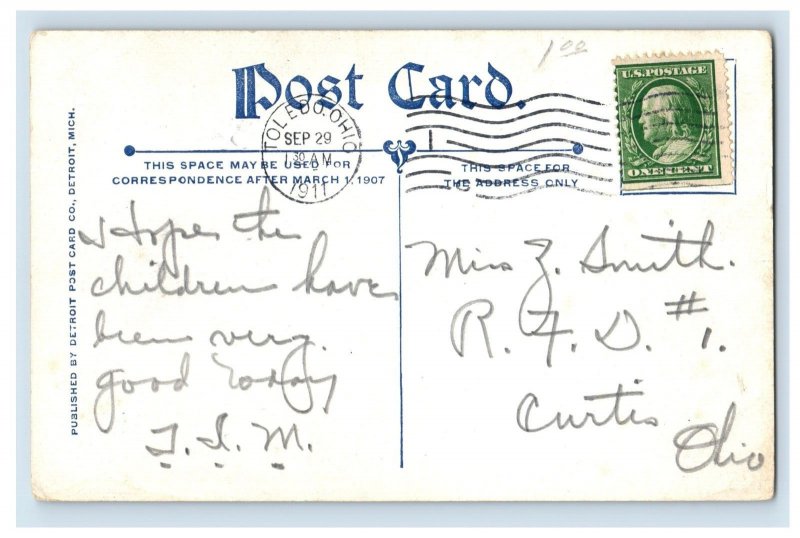 1.00
Post Card.
U.S. POSTAGE
ONE CENT
TOLEDO, OHIO
SEP 29
30 AM
1911
THIS SPACE MAY BE USED FOR
CORRESPONDENCE AFTER MARCH 1, 1907
THIS SPACE FOR
THE ADDRESS ONLY
PUBLISHED BY DETROIT POST CARD CO., DETROIT, MICH.
I Hope the
children have
been very
good today
I. M.
Miss Z. Smith.
R. F. D. #1.
Curtis
Ohio